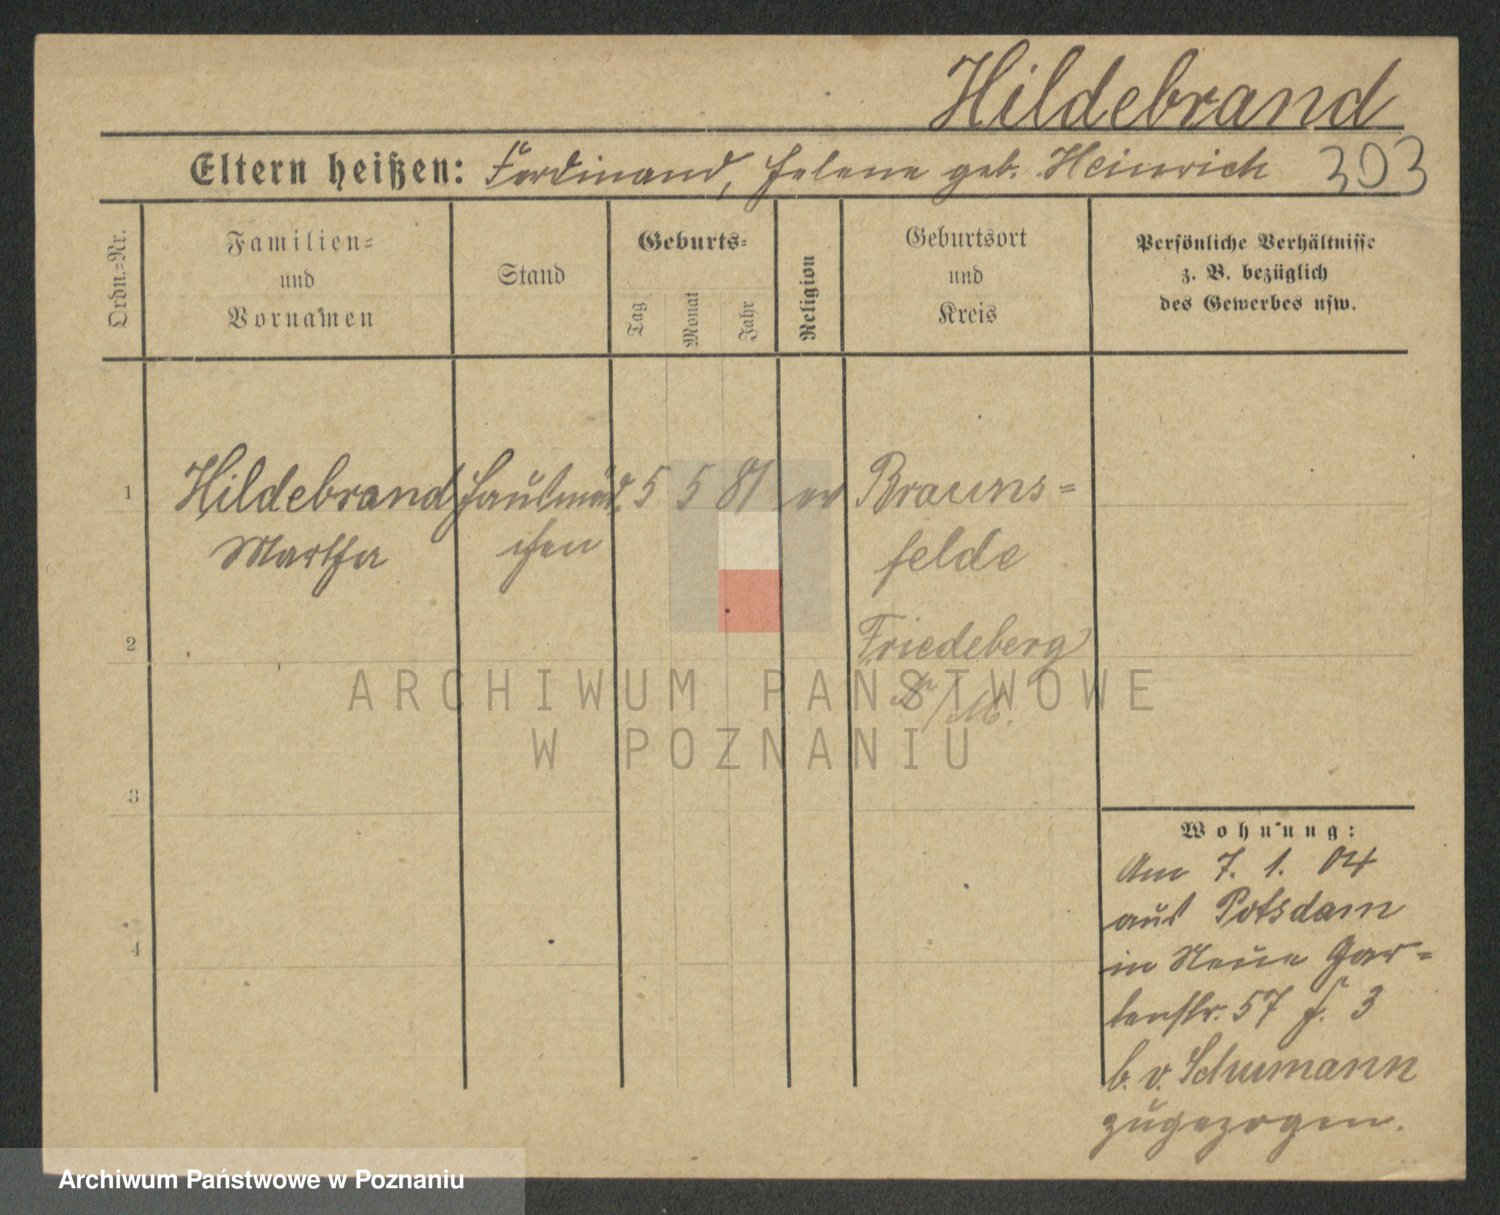 Hildebrand
Eltern heißen: Ferdinand, Helene geb. Heinrich 303
Ordn.=Nr.
Familien=
und
Vornamen
Stand
Geburts=
Tag
Monat
Jahr
Religion
Geburtsort
und
Kreis
Persönliche Verhältnisse
z. B. bezüglich
des Gewerbes usw.
1 Hildebrand Hausmäd 5 5 81 ev Brauns=
Martha chen felde
2 Friedeberg
N/M.
ARCHIWUM PAŃSTWOWE
W POZNANIU
3
Wohnung:
Am 7. 1. 04
aus Potsdam
in Neue Gar=
tenstr. 57 H. 3
b. v. Schumann
zugezogen.
4
Archiwum Państwowe w Poznaniu